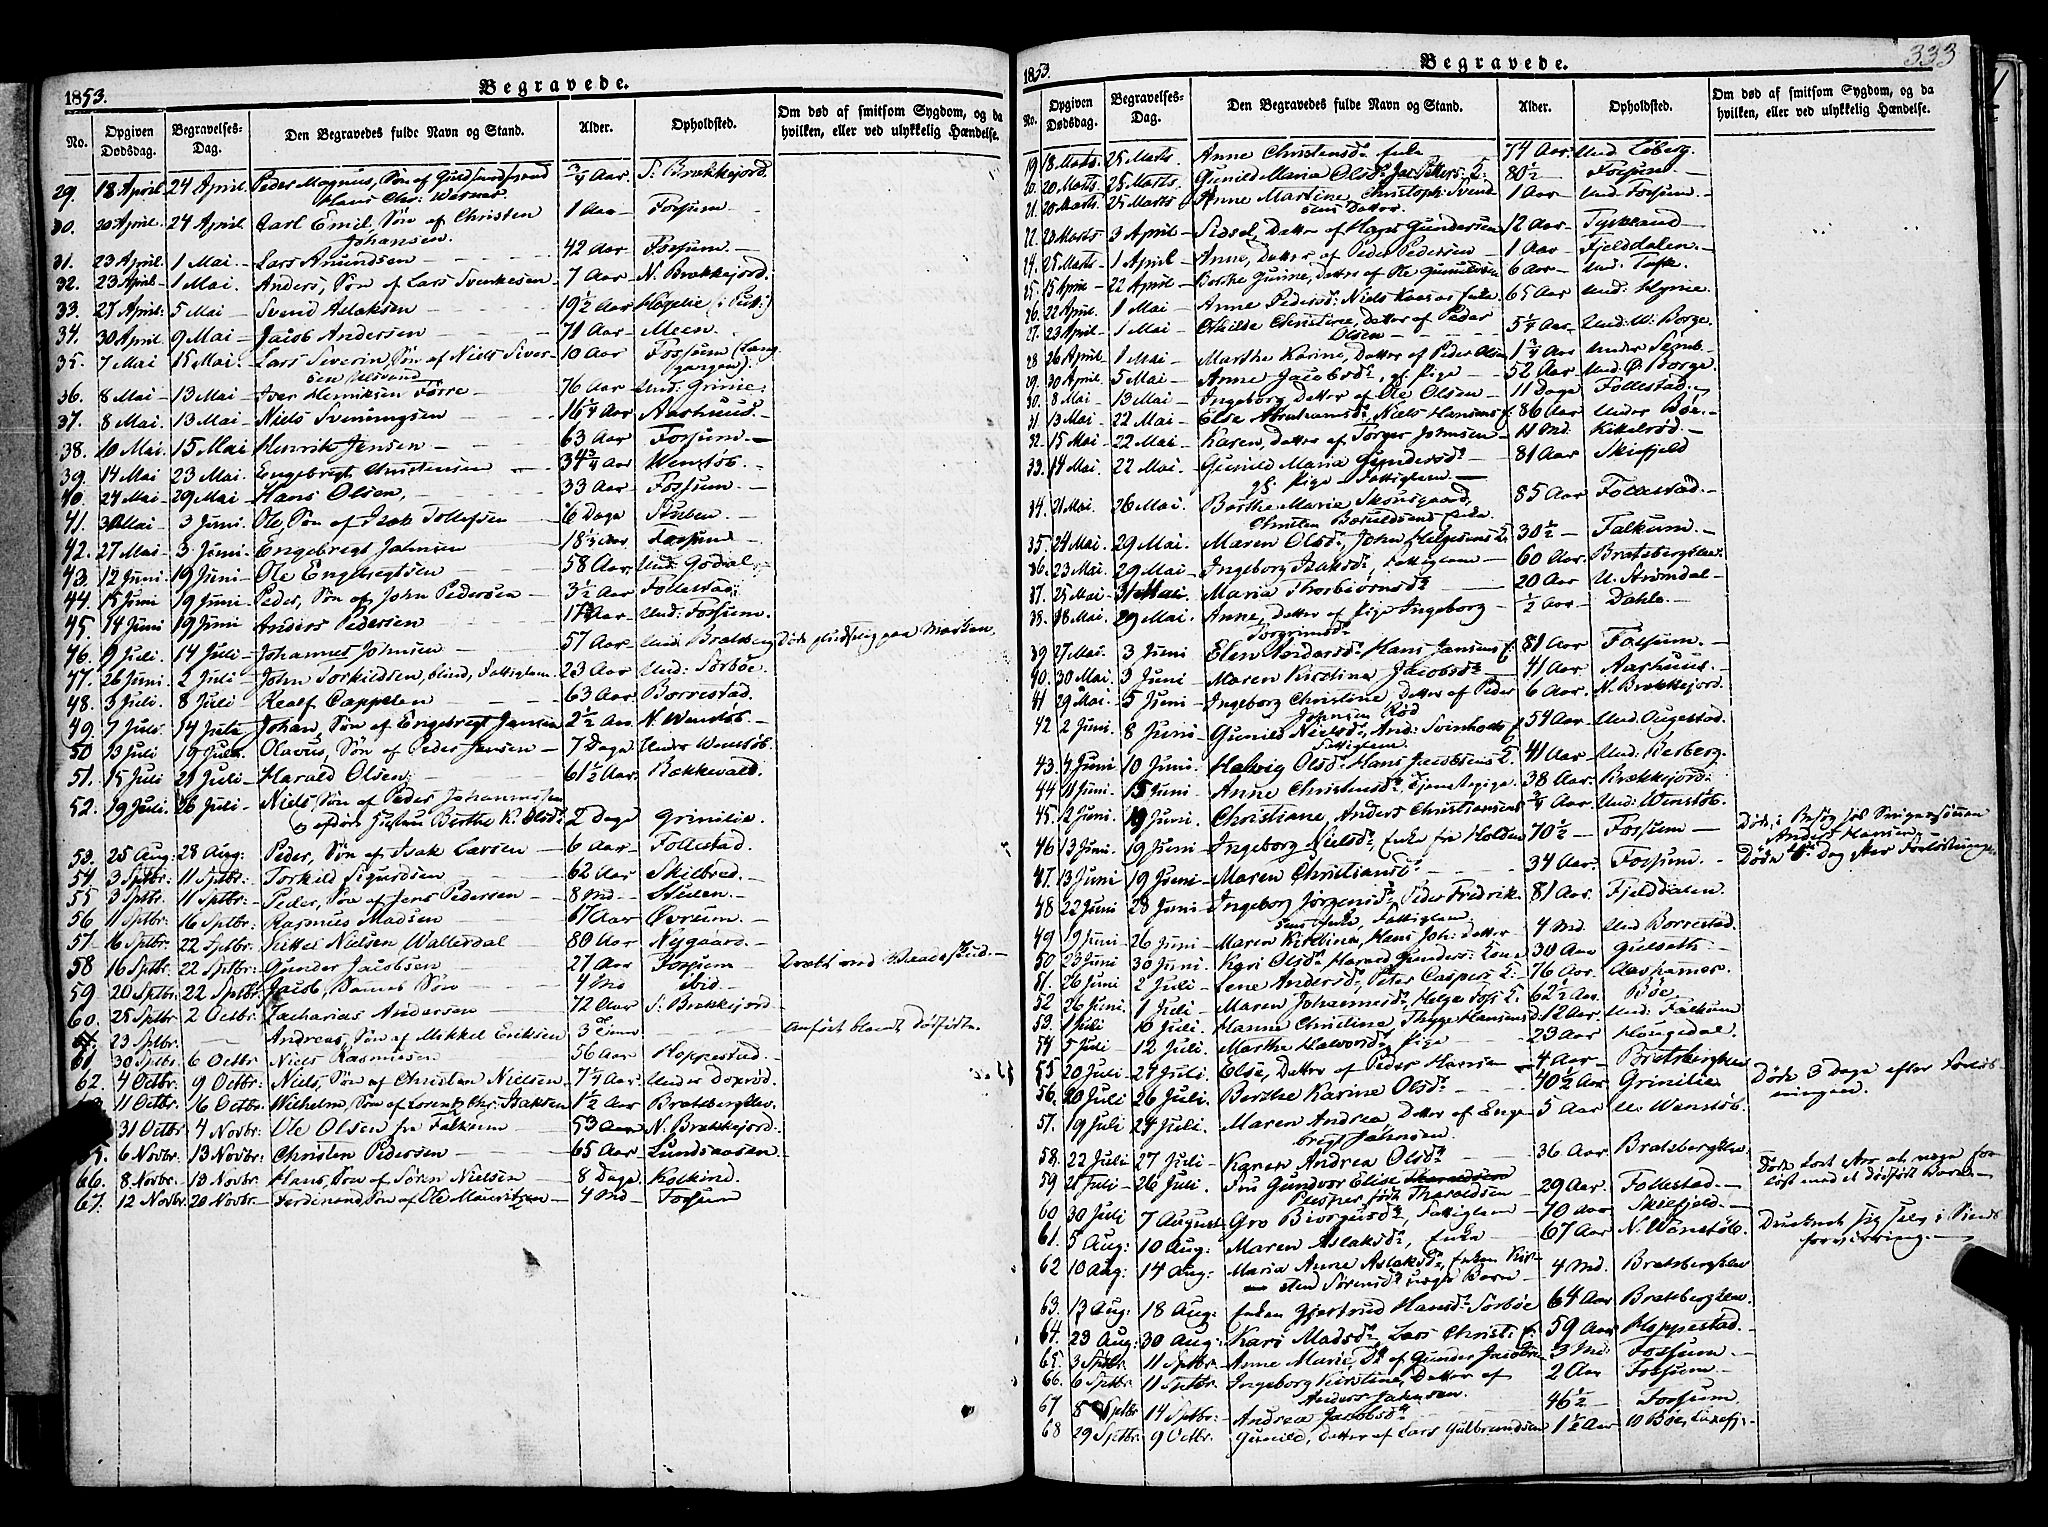 1853.
Begravede.
No.
Opgiven Dødsdag.
Begravelses-Dag.
Den Begravedes fulde Navn og Stand.
Alder.
Opholdsted.
Om død af smitsom Sygdom, og da hvilken, eller ved ulykkelig Hændelse.
29. 18 April 24 April Peder Magnus, Søn af 3/4 Aar S: Brækkejord.
Hans Chr: Werner.
30. 20 April 24 April Carl Emil, Søn af Christen 1 Aar Fossum.
Johansen.
31. 23 April 1 Mai Lars Amundsen 42 Aar Fossum.
32. 23 April 1 Mai Anders, Søn af Lars Svenkesen 7 Aar N. Brækkejord.
33. 27 April 5 Mai Svend Aslaksen 19 1/2 Aar
34. 30 April 9 Mai Jacob Andersen 71 Aar Meen.
35. 7 Mai 15 Mai Lars Severin, Søn af Niels Siver- 10 Aar Fossum (Lang
sen Ulsvend gangen).
36. 8 Mai 13 Mai Iver Henriksen Førre 76 Aar Und: Grinie.
37. 8 Mai 13 Mai Niels Svenungsen 16 1/4 Aar Aarhuus.
38. 10 Mai 15 Mai Henrik Jensen 63 Aar Fossum.
39. 14 Mai 23 Mai Engebregt Christensen 34 3/4 Aar Wenstøb.
40. 24 Mai 29 Mai Hans Olsen, 33 Aar Fossum.
41. 30 Mai 3 Juni Ole, Søn af Isak Tollefsen 6 Dage Stulen.
42. 27 Mai 3 Juni Engebregt Johnsen 18 1/2 Aar Fossum
43. 12 Juni 19 Juni Ole Engebregtsen 58 Aar Und: Godal
44. 15 Juni 19 Juni Peder, Søn af John Pedersen 3 1/2 Aar Follestad
45. 14 Juni 19 Juni Anders Pedersen Aar Und: Fossum.
46. 9 Juli 14 Juli Johannes Johnsen 57 Aar Und: Bratsberg Døde pludselig paa Marken.
47. 26 Juni 2 Juli John Torkildsen, blind, Fattiglem 23 Aar Und: Sørbøe.
48. 3 Juli 8 Juli Realf Cappelen 63 Aar Borrestad.
49. 7 Juli 14 Juli Johan, Søn af Engebregt Jansen 2 1/2 Aar N. Wenstøb.
50 13 Juli 19 Juli Olavus, Søn af Peder Jansen 7 Dage Under Wenstøb.
51. 15 Juli 21 Juli Harald Olsen 61 1/2 Aar Bækkevold.
52. 19 Juli 26 Juli Niels, Søn af Peder Johannessen
Berthe K. Olsd 2 Dage Grinilie.
53. 25 Aug: 28 Aug: Peder, Søn af Isak Larsen 6 Aar Follestad.
54 3 Sptbr: 11 Sptbr: Torkild Sigurdsen 62 Aar Skilbred.
55 3 Sptbr: 11 Sptbr: Peder, Søn af Jens Pedersen 8 Md Stulen.
56 11 Sptbr: 16 Sptbr: Rasmus Madsen 67 Aar Øvrum.
57 16 Sptbr: 22 Sptbr: Kittel Nielsen Wallerdal 80 Aar Nygaard.
58 16 Sptbr: 22 Sptbr: Gunder Jacobsen 27 Aar Fossum Dræbt ved Vaadeskud.
59 20 Sptbr: 22 Sptbr: Jacob, Sammes Søn 4 Md ibid.
60. 25 Sptbr: 2 Octbr: Zacharias Andersen 72 Aar S: Brækkejord
23 Sptbr. Andreas, Søn af Mikkel Eriksen 3 anført blandt Dødfødte.
61 30 Sptbr: 6 Octbr Niels Rasmusen 56 Aar Hoppestad.
62. 4 Octbr: 9 Octbr: Niels, Søn af Christen Nielsen 7 1/4 Aar
11 Octbr: 16 Octbr: Wilhelm, Søn af Lorentz Chr: Isaksen 1 1/2 Aar Bratsbergklev.
31 Octbr: 4 Novbr: Ole Olsen fra Falkum 53 Aar N. Brækkejord.
6 Novbr: 13 Novbr: Christen Pedersen 65 Aar Lundsaasen
66 8. Novbr: 13 Novbr: Hans, Søn af Søren Nielsen 8 Dage
67. 12 Novbr: 20 Novbr: Ferdinand, Søn af Ole Mauritzen 4 Md Fossum
1853.
Begravede.
333
No.
Opgiven Dødsdag.
Begravelses-Dag.
Den Begravedes fulde Navn og Stand.
Alder.
Opholdsted.
Om død af smitsom Sygdom, og da hvilken, eller ved ulykkelig Hændelse.
19 18 Marts 25 Marts. Anne Christensd: Enke 74 Aar Und. Liberg.
20. 20 Marts 25 Marts. Gunild Maria Olsd: 80 1/2 Fossum
21. 20 Marts 25 Marts Anne Martine, Christoph: Svend- 1 Aar Und. Fossum.
sens Datter.
22. 28 Marts 3 April Sidsel, Datter af Hans Gundersen 12 Aar Tyskland
24. 25 Marts 1 April Anne, Datter af Peder Pedersen 1 Aar Fjelddalen.
25. 15 April 22 April Berthe Gurine, Datter af Ole Gunuldsen 6 Aar Und: Tufte.
26. 22 April 1 Mai Anne Pedersd: Niels Kaasas Enke 65 Aar Und: Hynie.
27. 23 April 1 Mai Othilde Christine, Datter af Peder 5 1/4 Aar Und: W: Borge.
Olsen
28 26 April 1 Mai Marthe Karine, Datter af Peder Olsen 1 3/4 Aar Under Semb
29. 30 April 5 Mai Anne Jacobsd:, gl. Pige 52 Aar Und: Ø. Borge.
30. 8 Mai 13 Mai Ingeborg Datter af Ole Olsen 11 Dage Follestad.
31 13 Mai 22 Mai Else Abrahamsd: Niels Hansens E. 86 Aar Under Bøe.
32. 15 Mai 22 Mai Karen, Datter af Torger Johnsen 11 Md. Kikkelrød.
33. 14 Mai 22 Mai Gunild Maria Gundersd: 81 Aar Skifjeld
gl. Pige Fattiglem
34. 21 Mai 26 Mai. Berthe Marie Skousgaard, 85 Aar Follestad.
Christen Enke
35. 24 Mai. 29 Mai. Maren Olsd:, John Helgesens K: 30 1/2 Falkum.
36. 23 Mai. 29 Mai Ingeborg Isaksd:, Fattiglem 60 Aar. Bratsbergklev.
37. 25 Mai 31 Mai. Maria Thorbiørnsd: 20 Aar U. Strømdal
38. 18 Mai. 29 Mai. Anne, Datter af Pige Ingeborg 1/2 Aar Dahle.
Torgrimsd:
39 27 Mai. 3 Juni Elen Hans Jansens E. 81 Aar Fossum.
40. 30 Mai 3 Juni Maren Kirstine Jacobsd: 41 Aar Aarhuus.
41 29 Mai. 5 Juni Ingeborg Christine, Datter af Peder 6 Aar N. Brækkejord.
Johnsen Rød
42. 2 Juni. 8 Juni Gunild Nielsd:, And: Svenholts E 54 Aar Und. Augestad.
Fattiglem.
43. 4 Juni 10 Juni. Helvig Olsd: Hans Jacobsens K. 41 Aar Und:
44 11 Juni. 15 Juni Anne Christensd:, Tjenestepige 38 Aar. Brækkejord:
45. 12 Juni 19 Juni. Christiane, Anders Christiansens 3/4 Aar. Und: Wenstøb.
46 13 Juni. 19 Juni Ingeborg Nielsd:, Enke fra Holden 70 1/2 Fossum
Anders Hansen
47. 13 Juni 19 Juni Maren Christiansd: 34 Aar. Fossum. Døde Dag efter
48 22 Juni 28 Juni Ingeborg Jørgensd: Peder Fredrik- 81 Aar. Fjelddalen.
sens Enke, Fattiglem
49 19 Juni 26 Juni Maren Kirstine, Hans Joh: Datter 4 Md Und Borrestad.
50 23 Juni 30 Juni Kari Olsd: Harald Gunders: Kone 30 Aar Gulseth.
51. 26 Juni 2 Juli Lene Andersd:, Peter Caspers: E. 76 Aar. Aashammer.
52 26 Juni. 1 Juli Maren Johannesd: Helge K: 62 1/2 Aar. Bøe.
53. 1 Juli 6 Juli. Hanne Christine, Thyge Hansens D. 12 Aar Und. Falkum
54 5 Juli 12 Juli. Marthe Halvorsd: Pige 23 Aar Hougedal.
55 20 Juli 24 Juli. Else, Datter af Peder Hansen 4 Aar Bratsbergklev
56. 20 Juli 26 Juli. Berthe Karine Olsd: 40 1/2 Aar Grinilie Døde 3 Dage efter Forløs-
ningen.
57. 19 Juli 24 Juli. Maren Andrea Datter af Enge- 5 Aar U. Wenstøb.
bregt Johnsen.
58 22 Juli 27 Juli Karen Andrea Olsd: 36 Aar Bratsbergklev
59 21 Juli 26 Juli. Fru Gundvor Elise 29 Aar. Follestad. Døde kort efter at være for-
Plesner født Tharaldsen løst med et dødfødt Barn
60 30 Juli 7 August Gro Fattiglem 70 Aar Skifjeld.
61. 5 Aug: 10 Aug: Maren Aslaksd:, Enke 67 Aar N. Wenstøb. Druknede sig selv i Sinds-
forvirring.
62 10 Aug: 14 Aug: Maria Anne Aslaksd:, Enken Kir- 4 Md. Bratsbergklev
sten Sørensd: uægte Barn
63. 13 Aug: 18 Aug: Enken Gjertrud Hansd: Sørbøe 64 Aar Bratsbergklev.
64. 23 Aug: 30 Aug: Kari Madsd:, Lars Christ: E: 59 Aar Hoppestad.
65. 3 Sptbr 11 Sptbr Anne Marie, D: af Gunder Jacobsen 3 Md. Fossum
66. 6 Sptbr 11 Sptbr. Ingeborg Kirstine, Datter af 2 Aar Fossum.
Anders Johnsen.
67 8 Sptbr 14 Sptbr: Andrea Jacobsd: 46 1/2 Fossum
68 29 Sptbr: 9 Octbr. Gunild, Datter af Lars Gulbrandsen 1 1/2 Aar